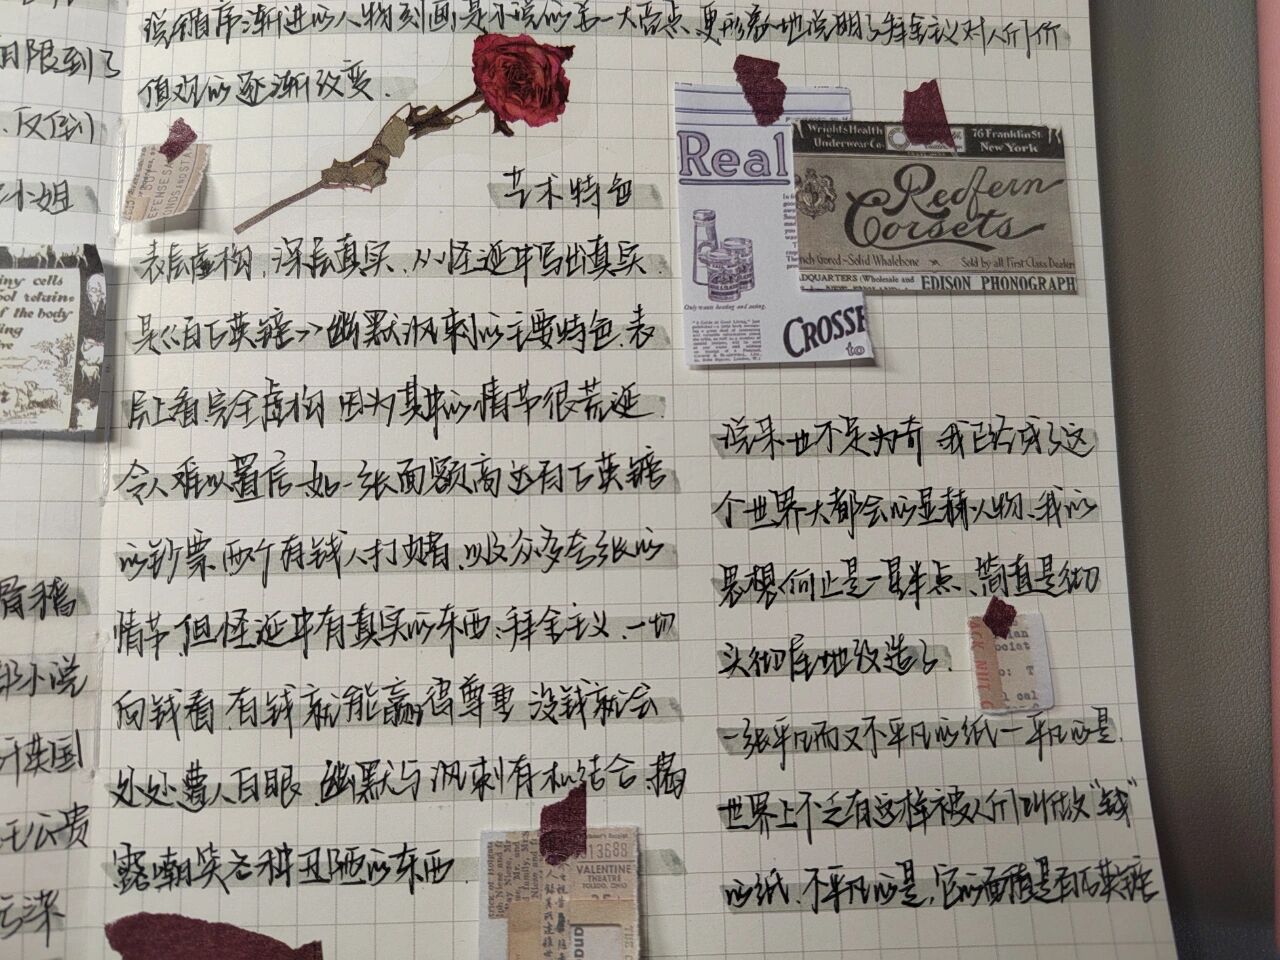 说循序渐进的人物刻画是小说的另一大亮点,更形象地说明了拜金主义对人们价
值观的逐渐改变.
艺术特色
表层虚构,深层真实,从怪诞中写出真实
是《百万英镑》幽默讽刺的主要特色.表
层上看完全虚构 因为其中的情节很荒诞
令人难以置信 如一张面额高达百万英镑
的钞票,两个有钱人打赌,以及众多夸张的
情节,但怪诞中有真实的东西,拜金主义,一切
向钱看,有钱就能赢得尊重 没钱就会
处处遭人白眼,幽默与讽刺有机结合,揭
露嘲笑各种丑陋的东西
说来也不足为奇 我已经成了这
个世界大都会的显赫人物,我的
思想何止是一星半点、简直是彻
头彻尾地改造了.
一张平凡而又不平凡的纸一平凡的是.
世界上不乏有这样被人们叫做"钱"
的纸.不平凡的是,它的面值是百万英镑
日限到了
、反倒
小姐
滑稽
部小说
英国
王公贵
污染
iny cells
ool retains
f the body
ing
ve
EFENSE
ONDS AND STA
Real
Only wants heating and eating.
CROSSE
to
Wright's Health
Underwear Co.
76 Franklin St.
New York
Redfern
Corsets
nch Gored - Solid Whalebone
Sold by all First Class Dealers
DQUARTERS (Wholesale and
EDISON PHONOGRAPH
ACK NUT
lan
oolat
o: T
l oal
313688
VALENTINE
THEATRE
TOLEDO, OHIO